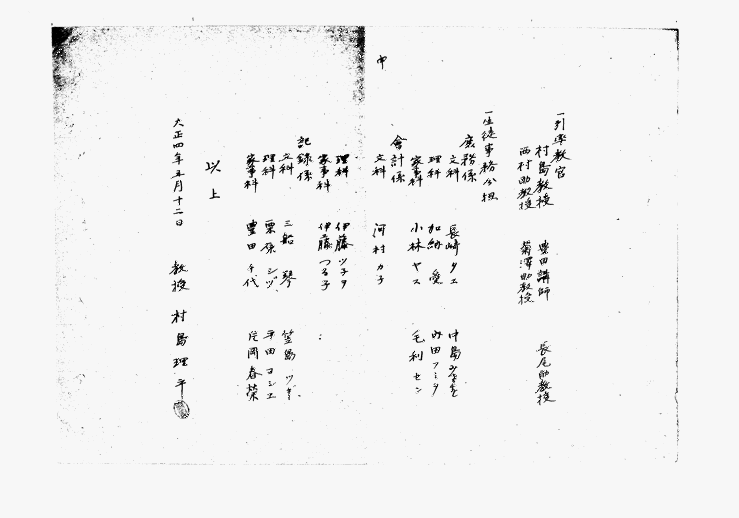 中
一引率教官
村島教授 豊田講師 長尾助教授
西村助教授 菊澤助教授
一生徒事務分担
庶務係
文科 長崎タエ 中島
理科 加納愛 内田フミタ
家事科 小林ヤス 毛利セン
會計係
文科 河村カ子
理科 伊藤ツチヲ
家事科 伊藤つる子
記録係
文科 三船琴 笠島ツギ
理科 栗原シヅ 平田ヨシエ
家事科 豊田千代 片岡春榮
以上
大正四年五月十二日 教授 村島理平